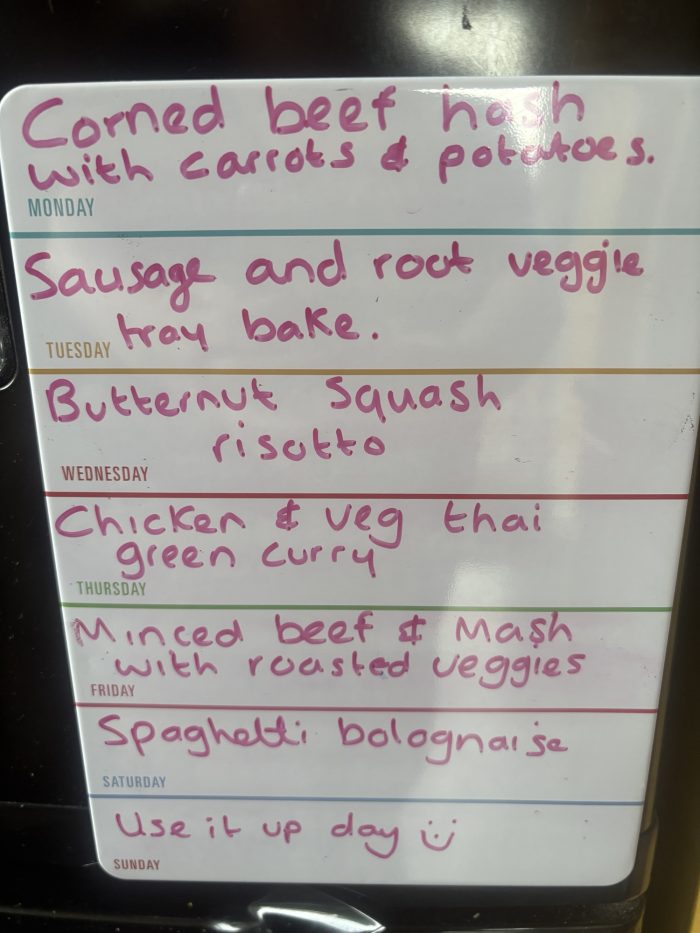 Corned beef hash
with carrots & potatoes.
MONDAY
Sausage and root veggie
tray bake.
TUESDAY
Butternut Squash
risotto
WEDNESDAY
Chicken & veg thai
green curry
THURSDAY
Minced beef & Mash
with roasted veggies
FRIDAY
Spaghetti bolognaise
SATURDAY
Use it up day :)
SUNDAY